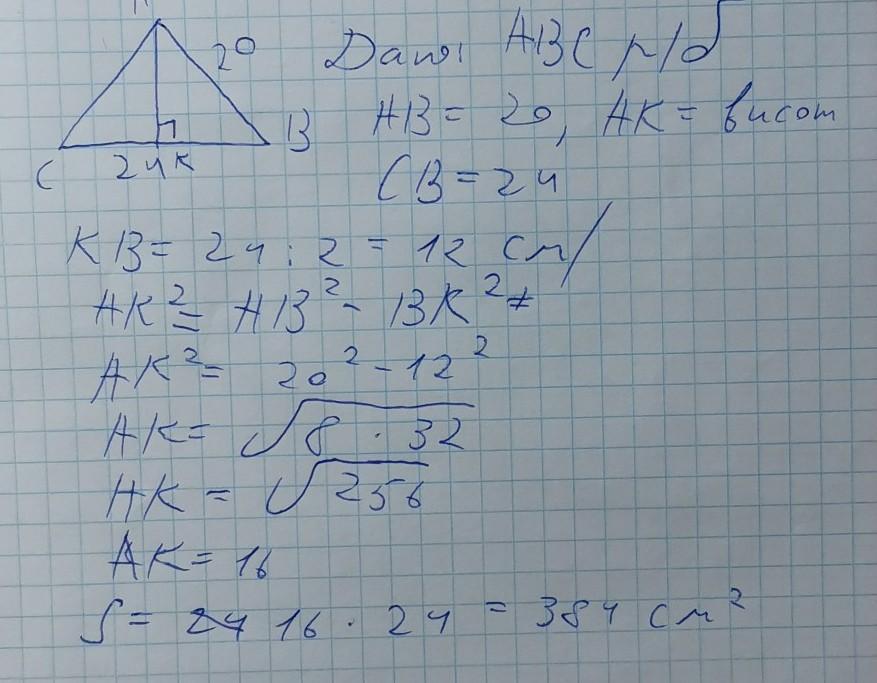 A
20
Дано: ABC р/б
B
AB = 20, AK = висот
C 24 K
CB = 24
KB = 24 : 2 = 12 см
AK² = AB² - BK²
AK² = 20² - 12²
AK = √8 · 32
AK = √256
AK = 16
S = 16 · 24 = 384 см²